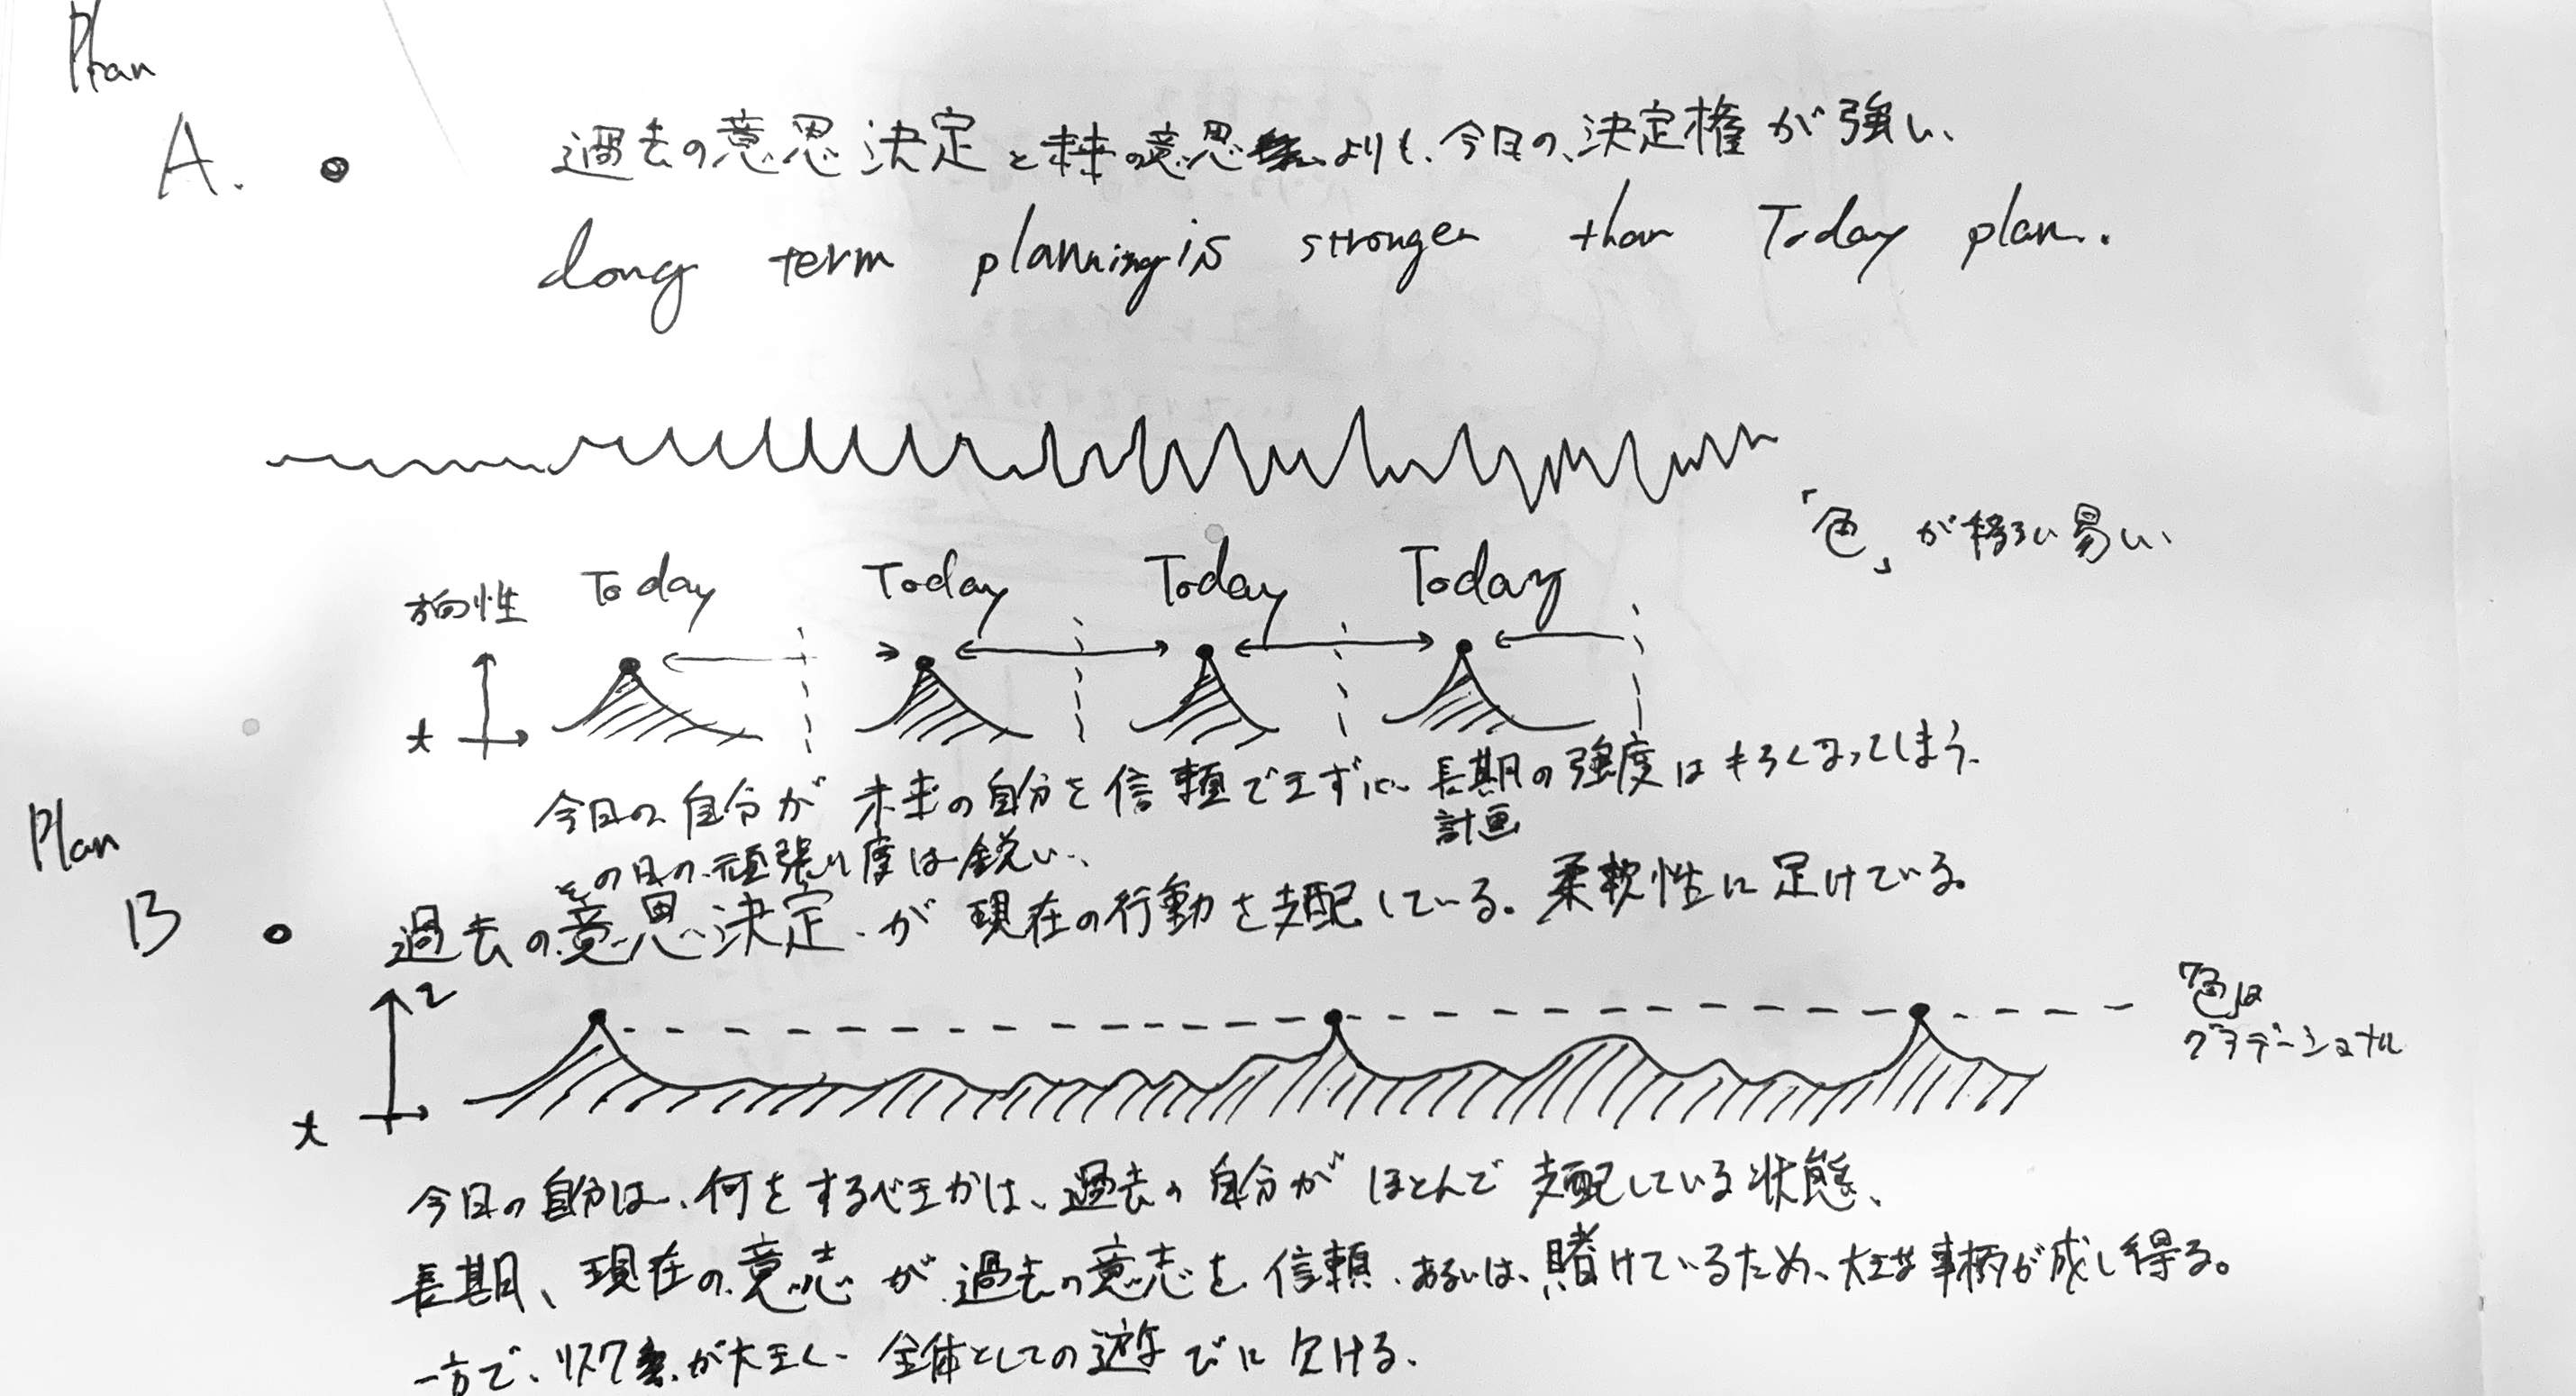 Plan
A. 過去の意思決定と未来の意思よりも、今日の、決定権が強い、
Long term planning is stronger than Today plan.
「色」が移ろい易い、
方向性 Today Today Today Today
t
今日の自分が未来の自分を信頼できずに、長期の強度はもろくなってしまう、
計画
その日の頑張り度は鋭い、
Plan
B 過去の意思決定が現在の行動を支配している。柔軟性に足けている。
「色」は
グラデーショナル
t
今日の自分は、何をするべきかは、過去の自分がほとんど支配している状態、
長期、現在の意志が過去の意志を信頼、あるいは、賭けているため、大きな事柄が成し得る。
一方で、リスクが大きく、全体としての遊びに欠ける、